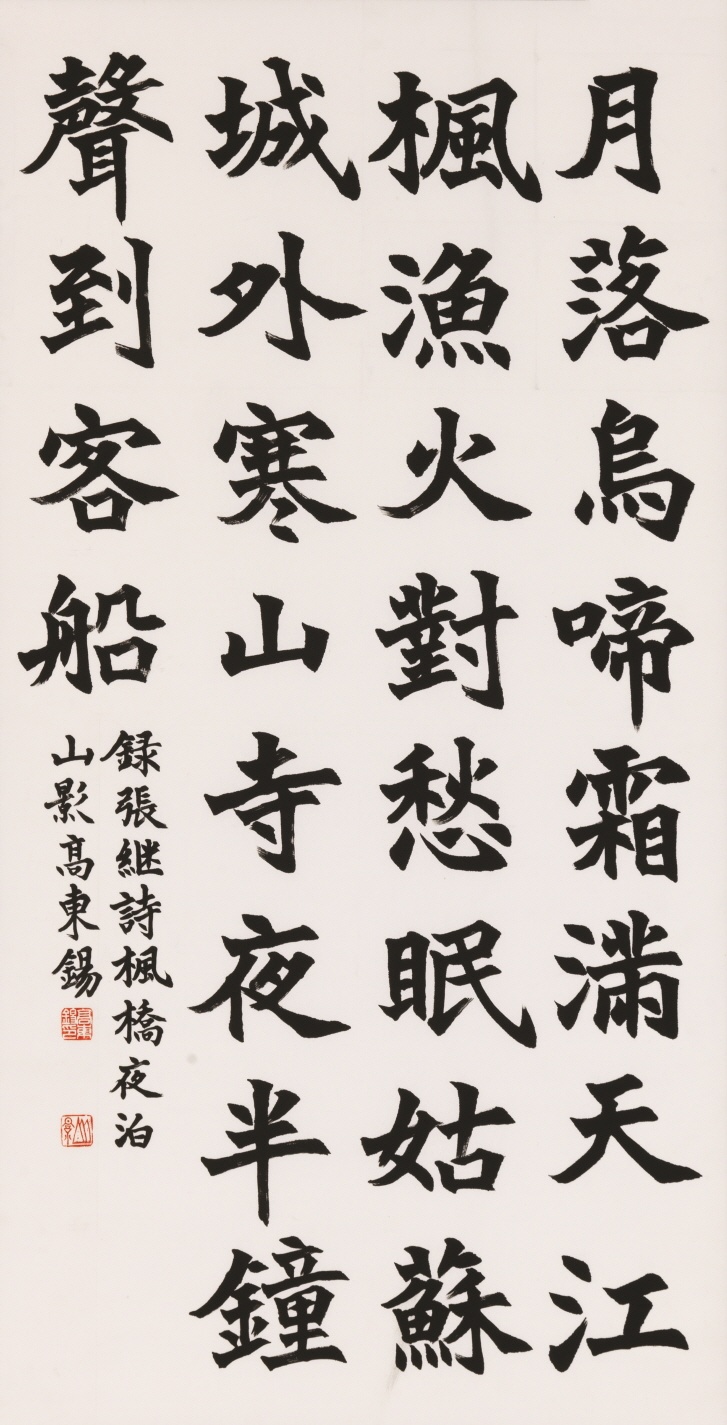 月落烏啼霜滿天江
楓漁火對愁眠姑蘇
城外寒山寺夜半鐘
聲到客船
録張継詩楓橋夜泊
山影高東錫
高東錫印
山影